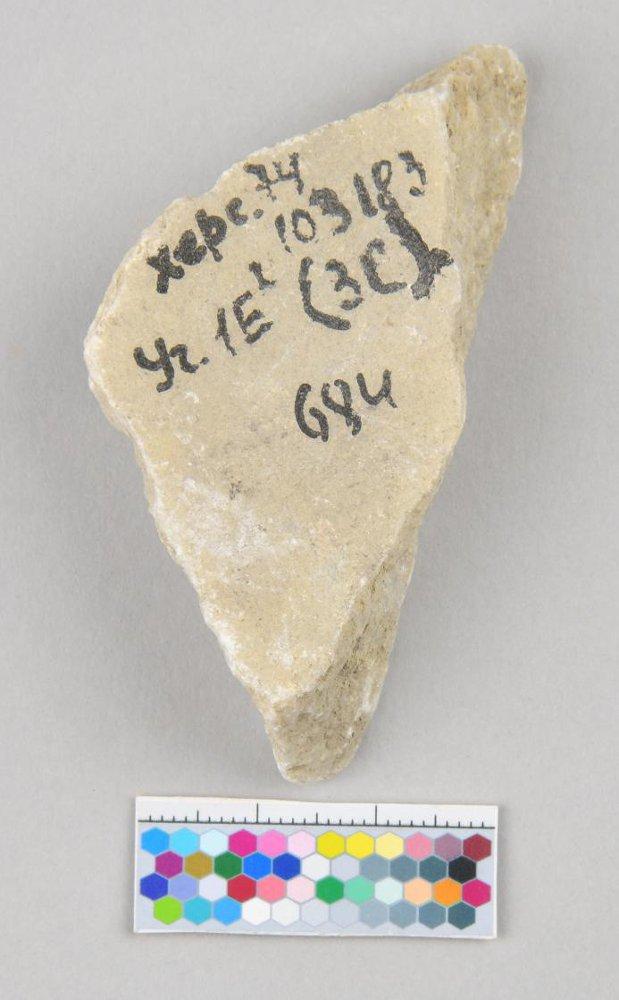 херс. 74
103183
Уг. 1Е¹ (3С)
684